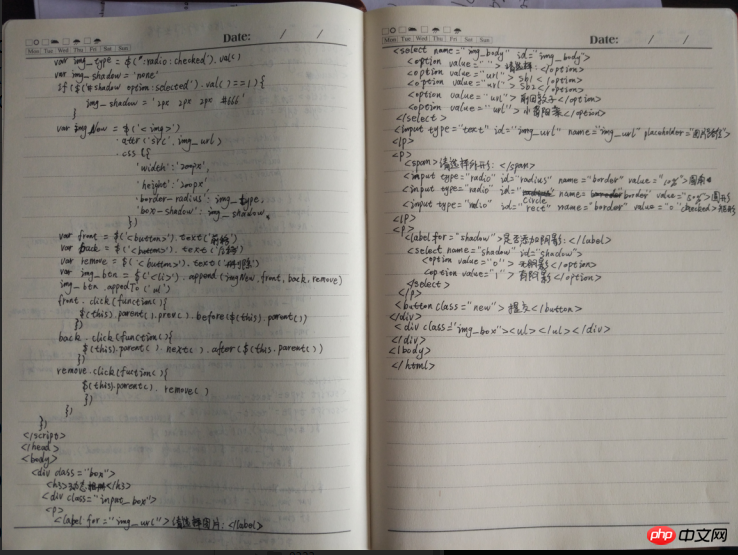 Date: / /
Mon Tue Wed Thu Fri Sat Sun
var img_type = $(":radio:checked").val()
var img_shadow = 'none'
if($('#shadow option:selected').val()==1){
img_shadow = '2px 2px 2px #666'
}
var imgNew = $('<img>')
.attr('src', img_url)
.css({
'width':'200px',
'height':'200px',
'border-radius': img_type,
'box-shadow': img_shadow,
})
var front = $('<button>').text('前移')
var back = $('<button>').text('后移')
var remove = $('<button>').text('删除')
var img_btn = $('<li>').append(imgNew, front, back, remove)
img_btn.appedTo('ul')
front.click(function(){
$(this).parent().prev().before($(this).parent())
})
back.click(function(){
$(this).parent().next().after($(this.parent())
})
remove.click(fuction(){
$(this).parent().remove()
})
})
})
</script>
</head>
<body>
<div class="box">
<h3>动态相册</h3>
<div class="input_box">
<p>
<label for="img_url">请选择图片:</label>
Date: / /
Mon Tue Wed Thu Fri Sat Sun
<select name="img_body" id="img_body">
<option value="">请选择:</option>
<option value="url">sb1</option>
<option value="url">sb2</option>
<option value="url"></option>
<option value="url"></option>
</select>
<input type="text" id="img_url" name="img_url" placeholder="图片路径">
</p>
<p>
<span>请选择外形:</span>
<input type="radio" id="radius" name="border" value="10%">圆角
<input type="radio" id="circle" name="border" value="50%">圆形
<input type="radio" id="rect" name="border" value="0" checked>矩形
</p>
<p>
<label for="shadow">是否添加阴影:</label>
<select name="shadow" id="shadow">
<option value="0">无阴影</option>
<option value="1">有阴影</option>
</select>
</p>
<button class="new">提交</button>
</div>
<div class="img_box"><ul></ul></div>
</div>
</body>
</html>
php 中文网